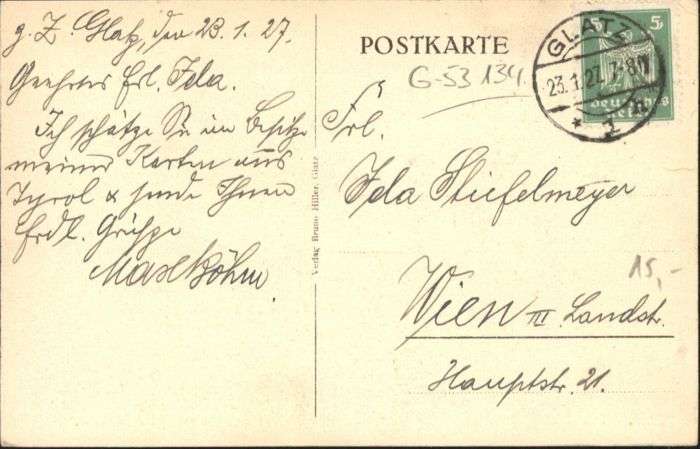 g. Z. Glatz, den 23.1.27.
Geehrtes Frl. Jela.
Ich schätze Sie im Besitze
meiner Karten aus
Tyrol & sende Ihnen
Frdl. Grüsse
Max Böhm
Verlag Bruno Hiller, Glatz
POSTKARTE
G-53 134.
GLATZ
23.1.27. 7-8N
* 1 h
5 5
Deutsches
Reich
Frl.
Jela Stiefelmeyer
15,-
Wien III. Landstr.
Hauptstr. 21.